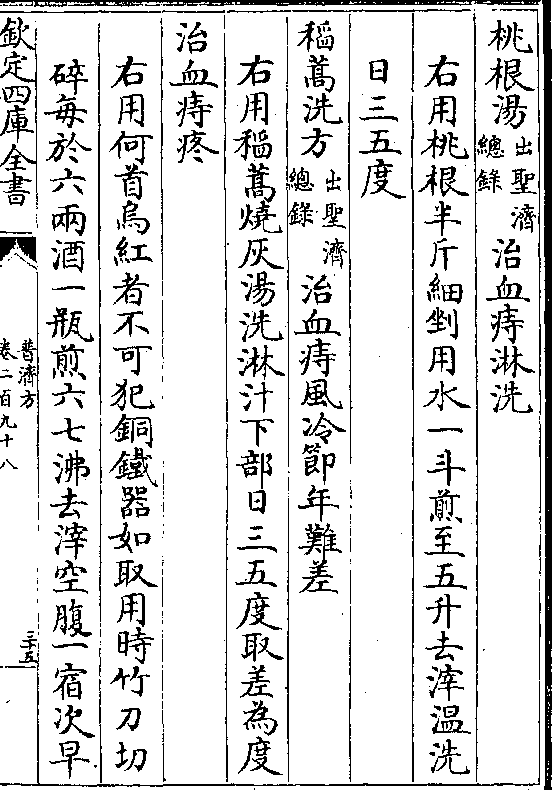 桃根湯出聖濟總錄治血痔淋洗
右用桃根半斤細剉用水一斗煎至五升去滓溫洗
日三五度
稲蒿洗方出聖濟總錄治血痔風冷節年難差
右用稲蒿燒灰湯洗淋汁下部日三五度取差為度
治血痔疼
右用何首烏紅者不可犯銅鐵器如取用時竹刀切
碎每於六兩酒一瓶煎六七沸去滓空腹一宿次早
欽定四庫全書
普濟方
卷二百九十八
三十五